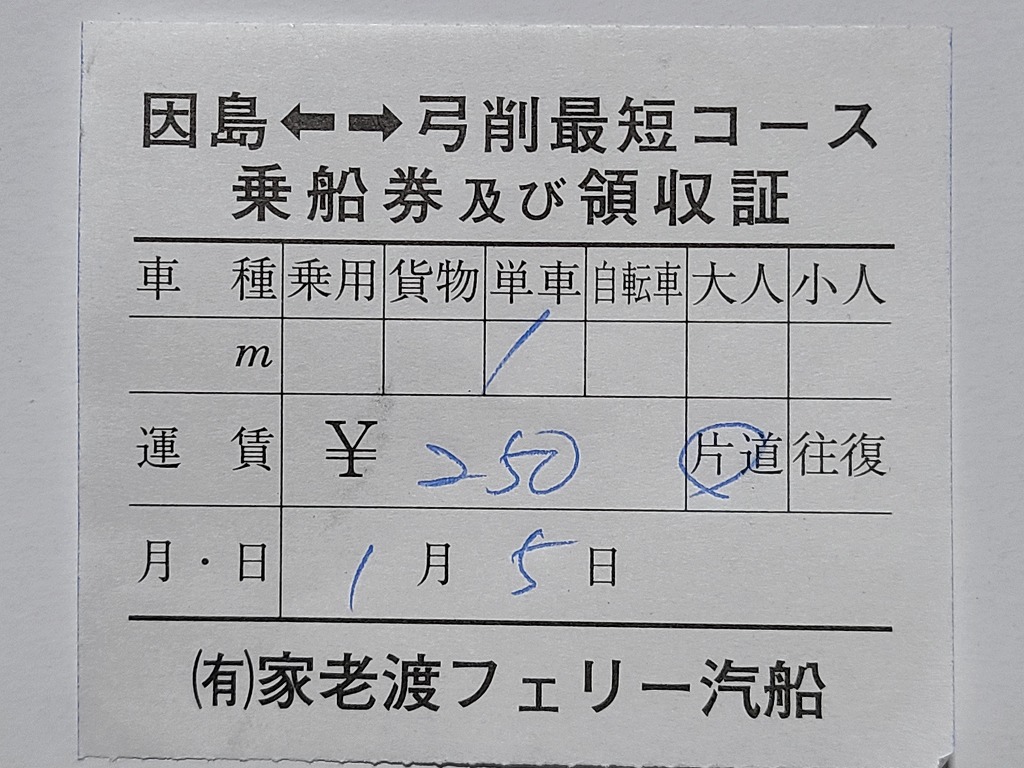 因島⬅➡弓削最短コース
乗船券及び領収証
車種 乗用 貨物 単車 自転車 大人 小人
m /
運賃 ¥ 250 片道 往復
月・日 1月 5日
㈲家老渡フェリー汽船